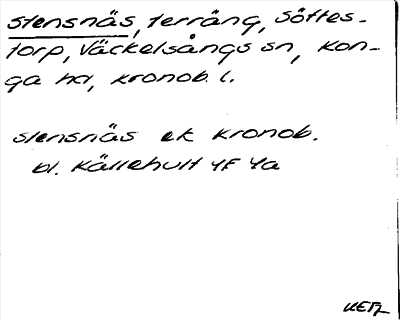 stensnäs, terräng, Söftes-
torp, Väckelsångs sn, Kon-
ga hd, Kronob. l.
stensnäs ek Kronob.
bl. Källehult 4F 4a